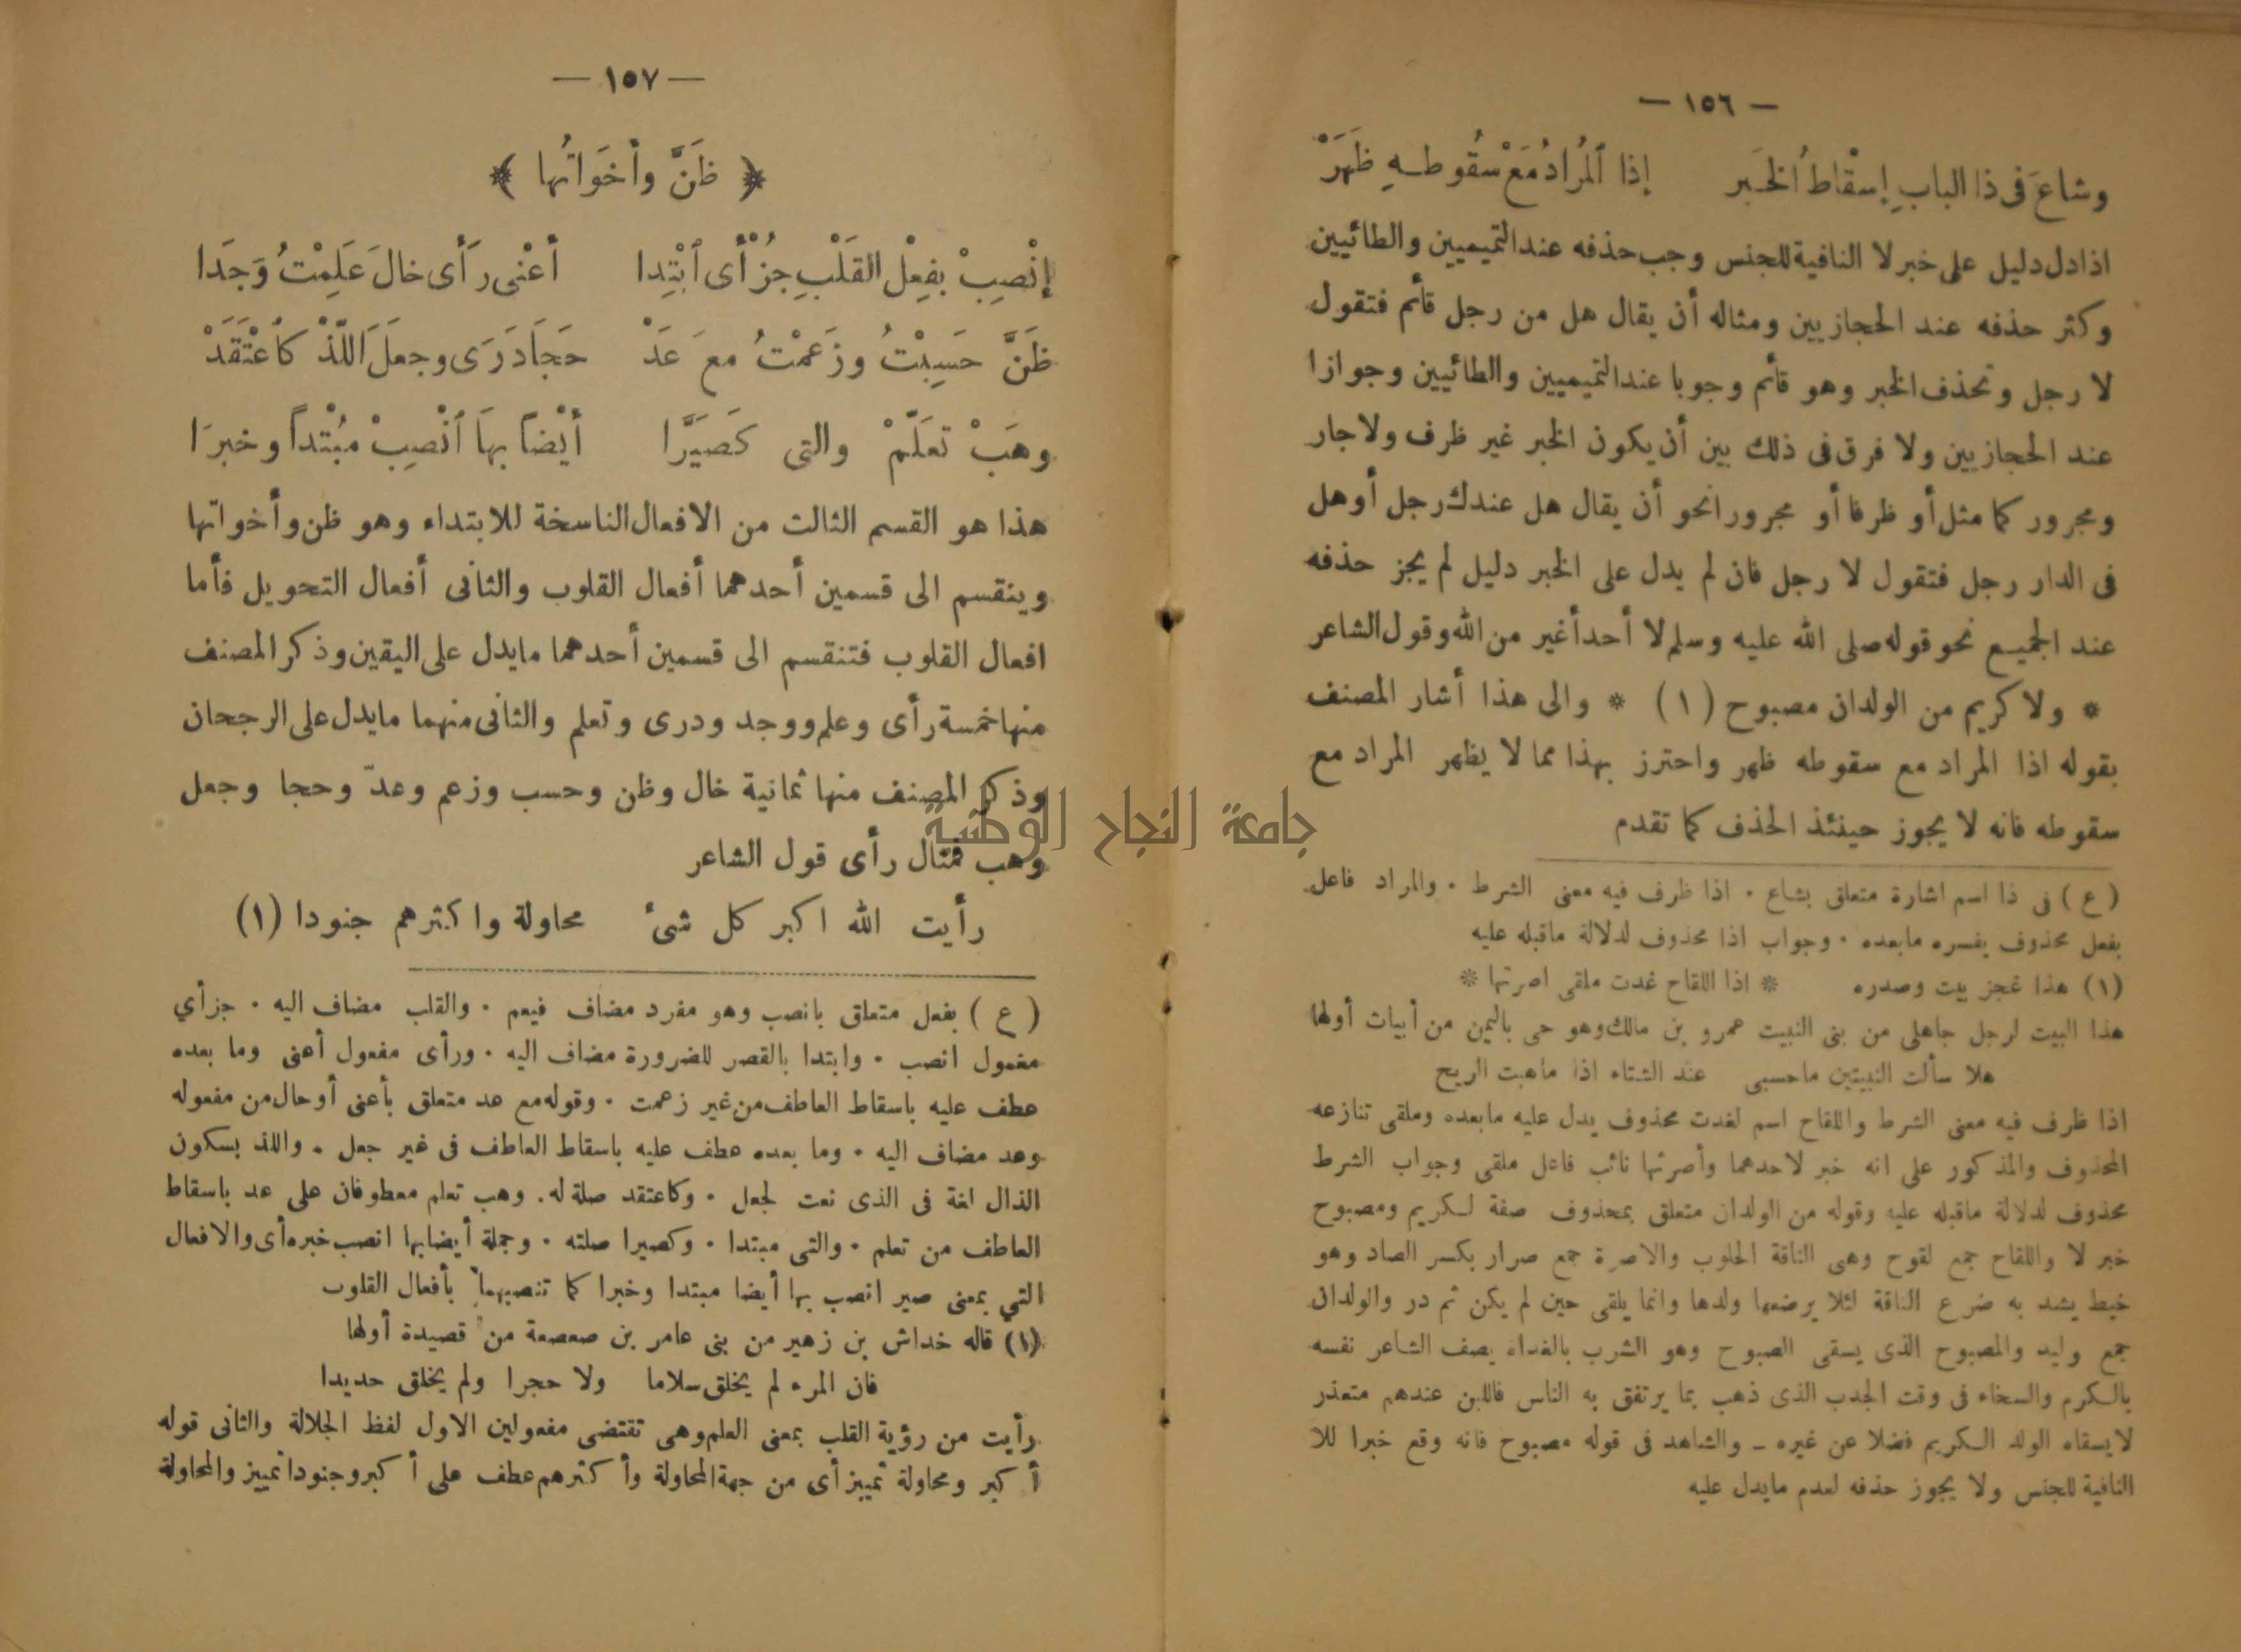 — ١٥٦ —
وشاعَ فى ذا البابِ إسْقاطُ الخَبر إذا ٱلمُرادُ مَعْ سُقُوطهِ ظَهَرَْ
اذا دل دليل على خبر لا النافية للجنس وجب حذفه عند التميميين والطائيين
وكثر حذفه عند الحجازيين ومثاله أن يقال هل من رجل قائم فتقول
لا رجل وتحذف الخبر وهو قائم وجوبا عند التميميين والطائيين وجوازا
عند الحجازيين ولا فرق فى ذلك بين أن يكون الخبر غير ظرف ولا جار
ومجرور كما مثل أو ظرفا أو مجرورا نحو أن يقال هل عندك رجل أو هل
فى الدار رجل فتقول لا رجل فان لم يدل على الخبر دليل لم يجز حذفه
عند الجميع نحو قوله صلى الله عليه وسلم لا أحد أغير من الله وقول الشاعر
* ولا كريم من الولدان مصبوح (١) * والى هذا أشار المصنف
بقوله اذا المراد مع سقوطه ظهر واحترز بهذا مما لا يظهر المراد مع
سقوطه فانه لا يجوز حينئذ الحذف كما تقدم
(ع) فى ذا اسم اشارة متعلق بشاع . اذا ظرف فيه معنى الشرط . والمراد فاعل
بفعل محذوف يفسره مابعده . وجواب اذا محذوف لدلالة ماقبله عليه
(١) هذا عجز بيت وصدره * اذا اللقاح غدت ملقى اصرتها *
هذا البيت لرجل جاهلى من بنى النبيت عمرو بن مالك وهو حى باليمن من أبيات أولها
هلا سألت النبيتين ماحسبى عند الشتاء اذا ماهبت الريح
اذا ظرف فيه معنى الشرط واللقاح اسم لغدت محذوف يدل عليه مابعده وملقى تنازعه
المحذوف والمذكور على انه خبر لاحدهما وأصرتها نائب فاعل ملقى وجواب الشرط
محذوف لدلالة ماقبله عليه وقوله من الولدان متعلق بمحذوف صفة لكريم ومصبوح
خبر لا واللقاح جمع لقوح وهى الناقة الحلوب والاصرة جمع صرار بكسر الصاد وهو
خيط يشد به ضرع الناقة لئلا يرضعها ولدها وانما يلقى حين لم يكن ثم در والولدان
جمع وليد والمصبوح الذى يسقى الصبوح وهو الشرب بالغداة يصف الشاعر نفسه
بالكرم والسخاء فى وقت الجدب الذى ذهب بما يرتفق به الناس فاللبن عندهم متعذر
لا يسقاه الولد الكريم فضلا عن غيره – والشاهد فى قوله مصبوح فانه وقع خبرا للا
النافية للجنس ولا يجوز حذفه لعدم مايدل عليه
— ١٥٧ —
﴿ ظَنَّ وأخَوَاتُها ﴾
إنْصِبْ بفِعْلِ القَلْبِ جُزْأَى ٱبْتِدا أعْنى رَأَى خالَ عَلِمْتُ وَجَدَا
ظَنَّ حَسِبْتُ وزَعَمْتُ معَ عَدْ حَجَا دَرَى وجعلَ اللَّذْ كاعْتَقَدَْ
وهَبْ تعلَّمْ والتى كَصَيَّرَا أيْضًا بهَا ٱنْصِبْ مبُتْدأً وخبرَا
هذا هو القسم الثالث من الافعال الناسخة للابتداء وهو ظن وأخواتها
وينقسم الى قسمين أحدهما أفعال القلوب والثانى أفعال التحويل فأما
افعال القلوب فتنقسم الى قسمين أحدهما مايدل على اليقين وذكر المصنف
منها خمسة رأى وعلم ووجد ودرى وتعلم والثانى منهما مايدل على الرجحان
وذكر المصنف منها ثمانية خال وظن وحسب وزعم وعدّ وحجا وجعل
وهب فمثال رأى قول الشاعر
رأيت الله اكبر كل شئ محاولة واكثرهم جنودا (١)
(ع) بفعل متعلق بانصب وهو مفرد مضاف فيعم . والقلب مضاف اليه . جزأي
مفعول انصب . وابتدا بالقصر للضرورة مضاف اليه . ورأى مفعول أعنى وما بعده
عطف عليه باسقاط العاطف من غير زعمت . وقوله مع عد متعلق بأعنى أو حال من مفعوله
وعد مضاف اليه . وما بعده عطف عليه باسقاط العاطف فى غير جعل . واللذ بسكون
الذال لغة فى الذى نعت لجعل . وكاعتقد صلة له . وهب تعلم معطوفان على عد باسقاط
العاطف من تعلم . والتى مبتدا . وكصيرا صلته . وجملة أيضا بها انصب خبره أى والافعال
التي بمعنى صير انصب بها أيضا مبتدا وخبرا كما تنصبهما بأفعال القلوب
(١) قاله خداش بن زهير من بنى عامر بن صعصعة من قصيدة أولها
فان المرء لم يخلق سلاما ولا حجرا ولم يخلق حديدا
رأيت من رؤية القلب بمعنى العلم وهى تقتضى مفعولين الاول لفظ الجلالة والثانى قوله
أكبر ومحاولة تمييز أى من جهة المحاولة وأكثرهم عطف على أكبر وجنودا تمييز والمحاولة
جامعة النجاح الوطنية